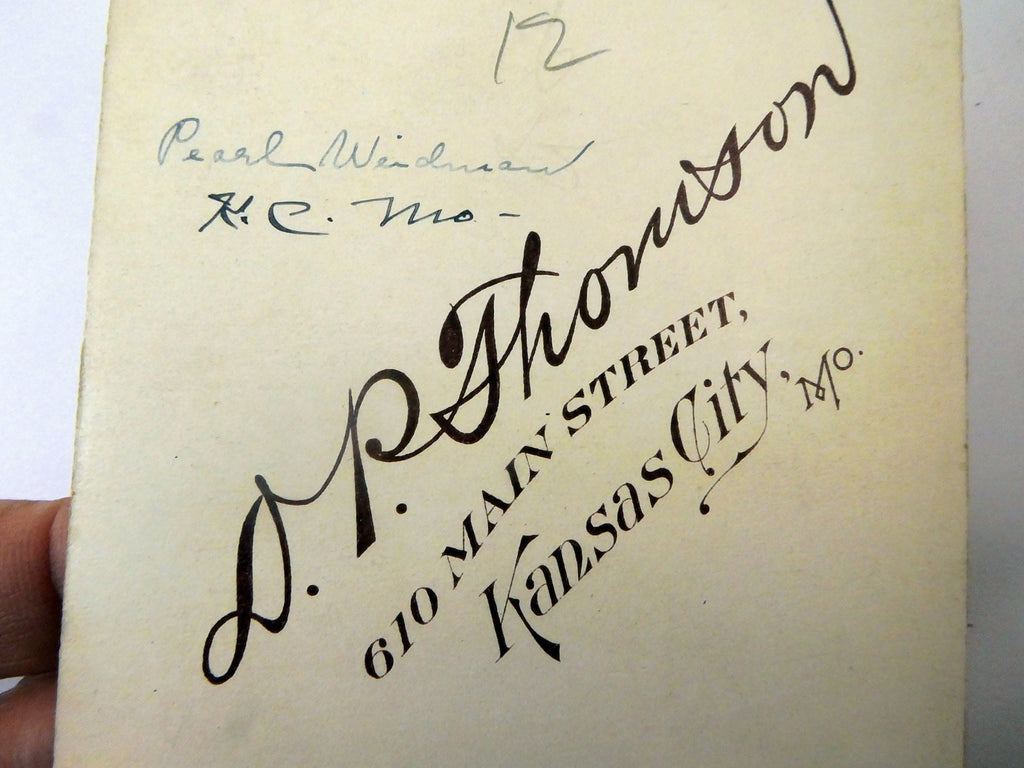 12
Pearl Weidman
K.C. Mo -
D. P. Thomson
610 MAIN STREET,
Kansas City, Mo.